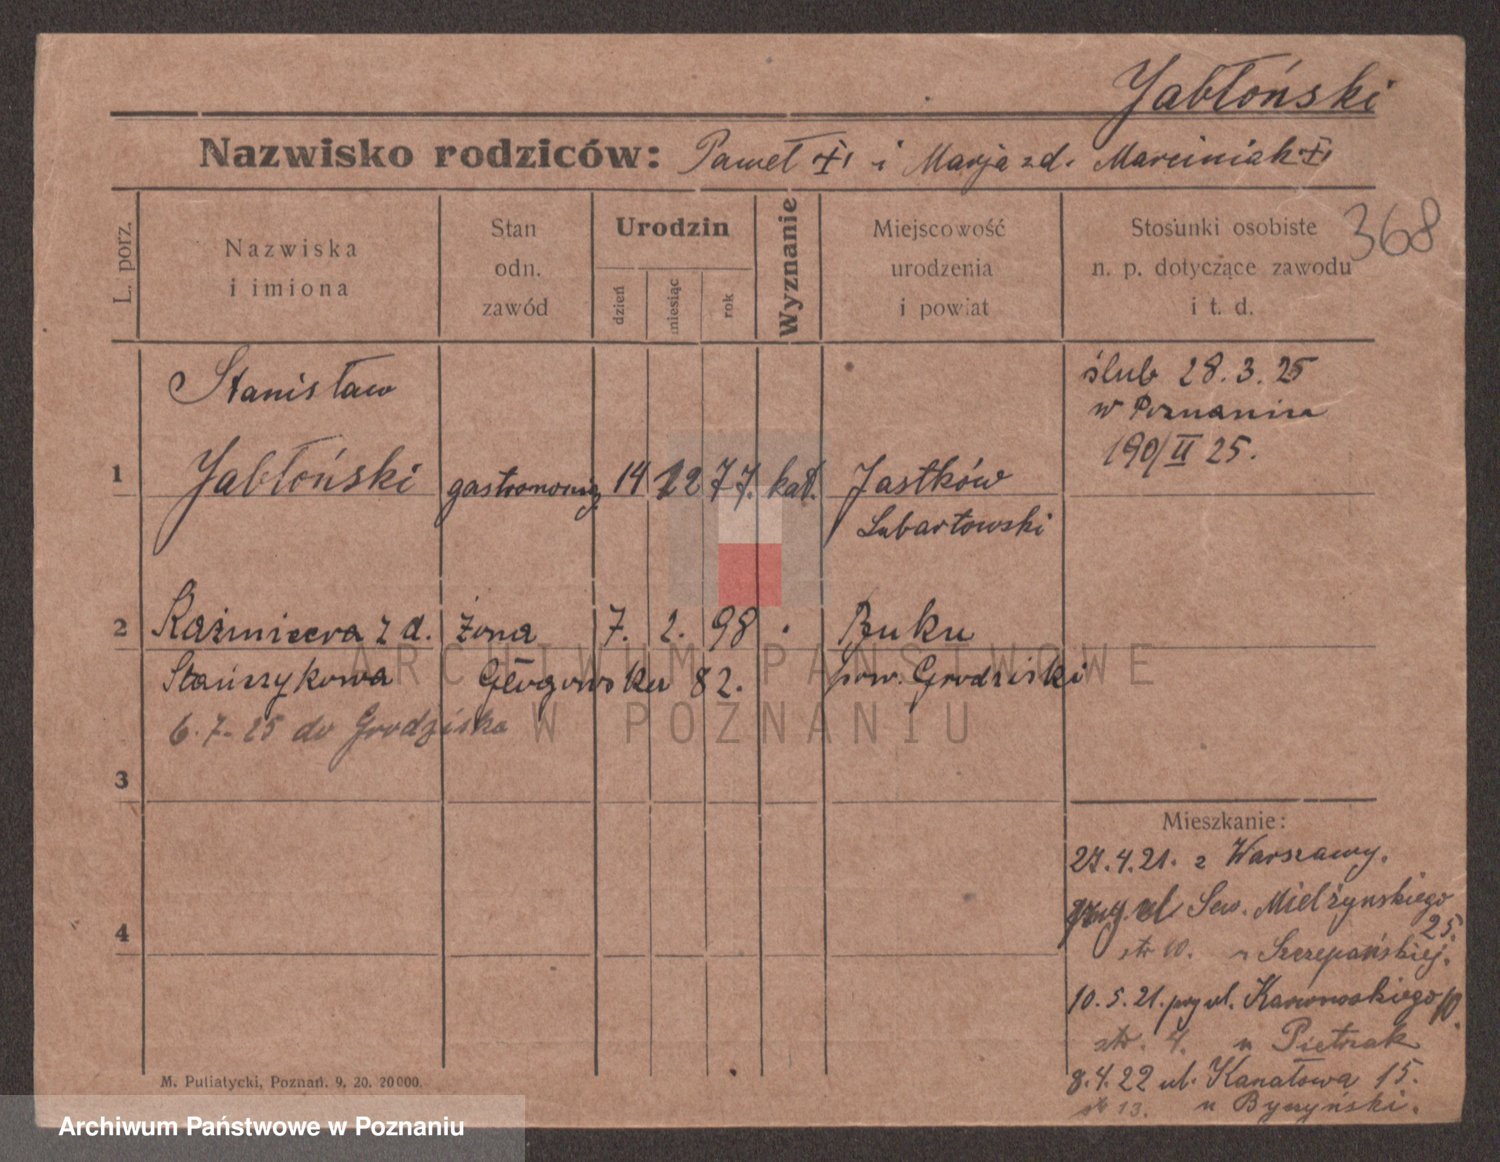 Jabłoński
Nazwisko rodziców: Paweł i Marja z d. Marciniak
368
L. porz.
Nazwiska
i imiona
Stan
odn.
zawód
Urodzin
dzień
miesiąc
rok
Wyznanie
Miejscowość
urodzenia
i powiat
Stosunki osobiste
n. p. dotyczące zawodu
i t. d.
Stanisław
ślub 28.3.25
w Poznaniu
190/II 25.
1 Jabłoński gastronomią 14 12 77. kat. Jastków
Lubartowski
2 Kaźmiera z d. żona 7. 2. 98 Buku
Stańczykowa Głogowska 82. pow. Grodziski
6.7-25 do Grodziska
3
Mieszkanie:
27.4.21. z Warszawy.
ul. Sew. Mielżynskiego
25.
4
str 10. Szczepańskiej.
10.5.21. przy ul. 10.
str. 4. u Pietrzak
8.4.22 ul. Kanałowa 15.
str 13. u
M. Putiatycki, Poznań. 9. 20. 20000.
ARCHIWUM PAŃSTWOWE
W POZNANIU
Archiwum Państwowe w Poznaniu